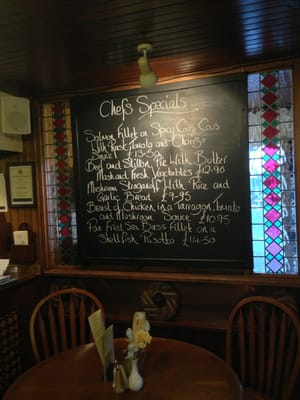 Chef's Specials
Salmon Fillet on Spicy Cous Cous
With Roast Tomato and Chorizo
Sauce £13.50
Beef and Stilton Pie With Butter
Mash and Fresh Vegetables £12.90
Mushroom Stroganoff With Rice and
Garlic Bread £9.95
Breast of Chicken in a Tarragon, Tomato
and Mushroom Sauce £10.95
Pan Fried Sea Bass Fillet on a
Shellfish Risotto £14.50